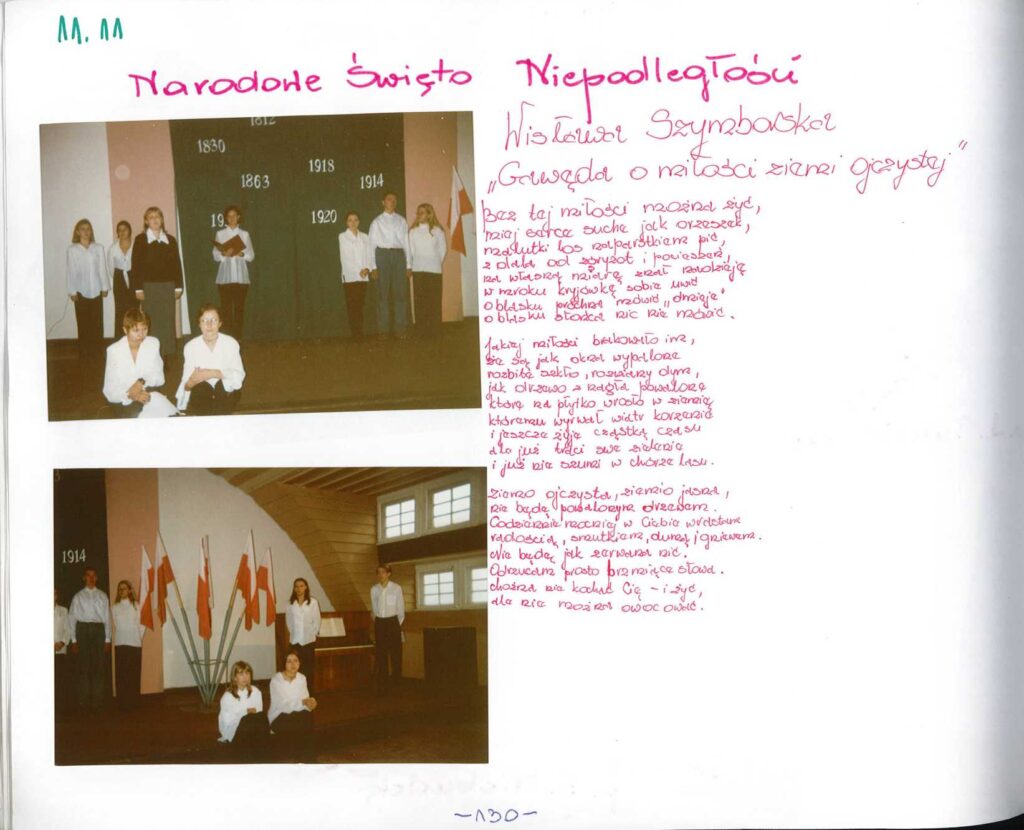 11. 11
Narodowe Święto Niepodległości
1812
1830
1918
1863
1914
1920
Wisława Szymborska
„Gawęda o miłości ziemi ojczystej”
Bez tej miłości można żyć,
mieć serce suche jak orzeszek,
malutki los naparstkiem pić,
z dala od zgryzot i pocieszeń,
na własną miarę znać nadzieję
w mroku kryjówkę sobie uwić
o blasku próchna mówić „dnieje”
o blasku słońca nic nie mówić.
Jakiej miłości brakowało im,
że są jak okno wypalone
rozbite szkło, rozwiany dym,
jak drzewo z nagła powalone
które za płytko wrosło w ziemię
któremu wyrwał wiatr korzenie
i jeszcze żyje cząstką czasu
ale już traci swe zielenie
i już nie szumi w chórze lasu.
Ziemio ojczysta, ziemio jasna,
nie będę powalonym drzewem.
Codziennie mocniej w Ciebie wrastam
radością, smutkiem, dumą, gniewem.
Nie będę jak zerwana nić.
Odrzucam pusto brzmiące słowa.
Można nie kochać Cię – i żyć,
ale nie można owocować.
1914
-130-